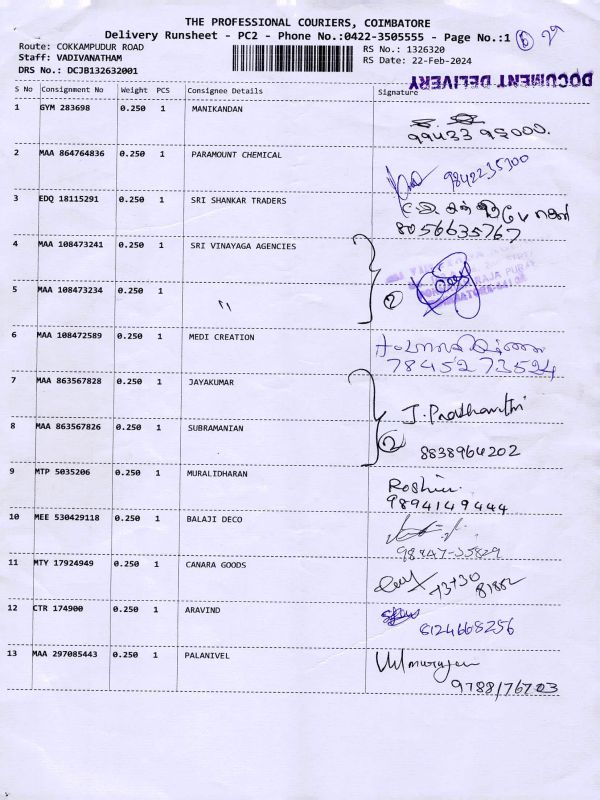 THE PROFESSIONAL COURIERS, COIMBATORE
Delivery Runsheet - PC2 - Phone No.:0422-3505555 - Page No.:1
Route: COKKAMPUDUR ROAD
Staff: VADIVANATHAM
DRS No.: DCJB132632001
RS No.: 1326320
RS Date: 22-Feb-2024
DOCUMENT DELIVERY
S No Consignment No Weight PCS Consignee Details Signature
1 GYM 283698 0.250 1 MANIKANDAN
99433 95000.
2 MAA 864764836 0.250 1 PARAMOUNT CHEMICAL
9842235300
3 EDQ 18115291 0.250 1 SRI SHANKAR TRADERS
8056635767
4 MAA 108473241 0.250 1 SRI VINAYAGA AGENCIES
5 MAA 108473234 0.250 1 "
2
6 MAA 108472589 0.250 1 MEDI CREATION
78452 73524
7 MAA 863567828 0.250 1 JAYAKUMAR
J. Prashanthi
8 MAA 863567826 0.250 1 SUBRAMANIAN
2 8838964202
9 MTP 5035206 0.250 1 MURALIDHARAN
Roshini
9894149444
10 MEE 530429118 0.250 1 BALAJI DECO
98847-35829
11 MTY 17924949 0.250 1 CANARA GOODS
73730
81882
12 CTR 174900 0.250 1 ARAVIND
8124668256
13 MAA 297085443 0.250 1 PALANIVEL
9788176703